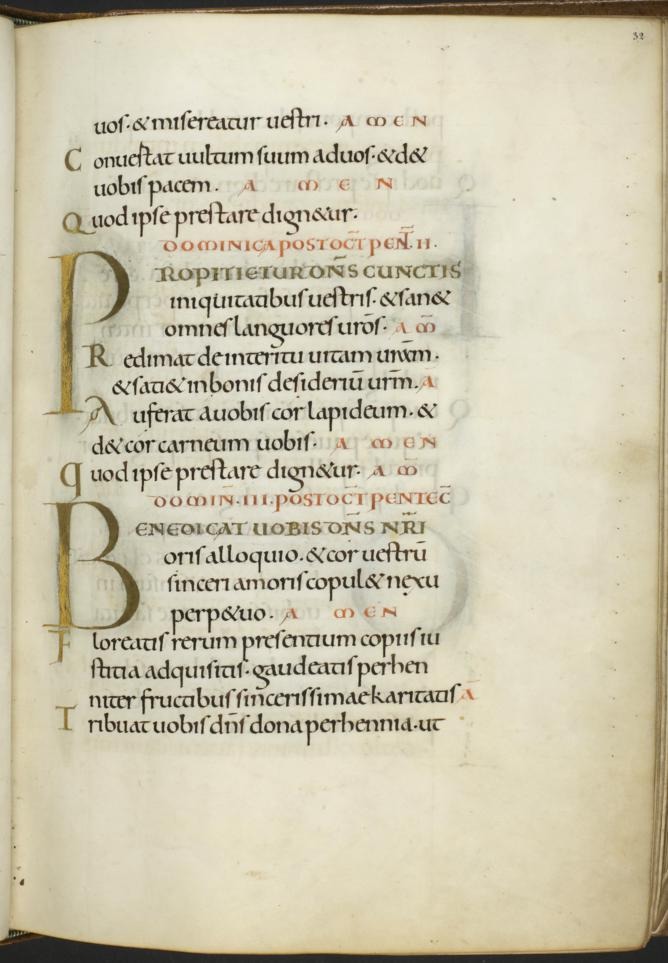 32
uos · & misereatur uestri · A M E N
Conuertat uultum suum ad uos · & d&
uobis pacem · A M E N
Quod ipse prestare dign&ur ·
DOMINICA POST OCT̄ PEN̄T · II ·
PROPITIETUR DN̄S CUNCTIS
iniquitatibus uestris · & san&
omnes languores ur̄os · A M̄
Redimat de interitu uitam ur̄am ·
& sati& in bonis desideriū ur̄m · Ā
Auferat a uobis cor lapideum · &
d& cor carneum uobis · A M E N
quod ipse prestare dign&ur · A M̄
DOMIN̄ · III · POST OCT̄ PENTEC̄
BENEDICAT UOBIS DN̄S NR̄I
oris alloquio · & cor uestrū
sinceri amoris copul& nexu
perp&uo · A M E N
Floreatis rerum presentium copiis iu
stitia adquisitis · gaudeatis perhen
niter fructibus sincerissimae karitatis Ā
Tribuat uobis dn̄s dona perhennia · ut